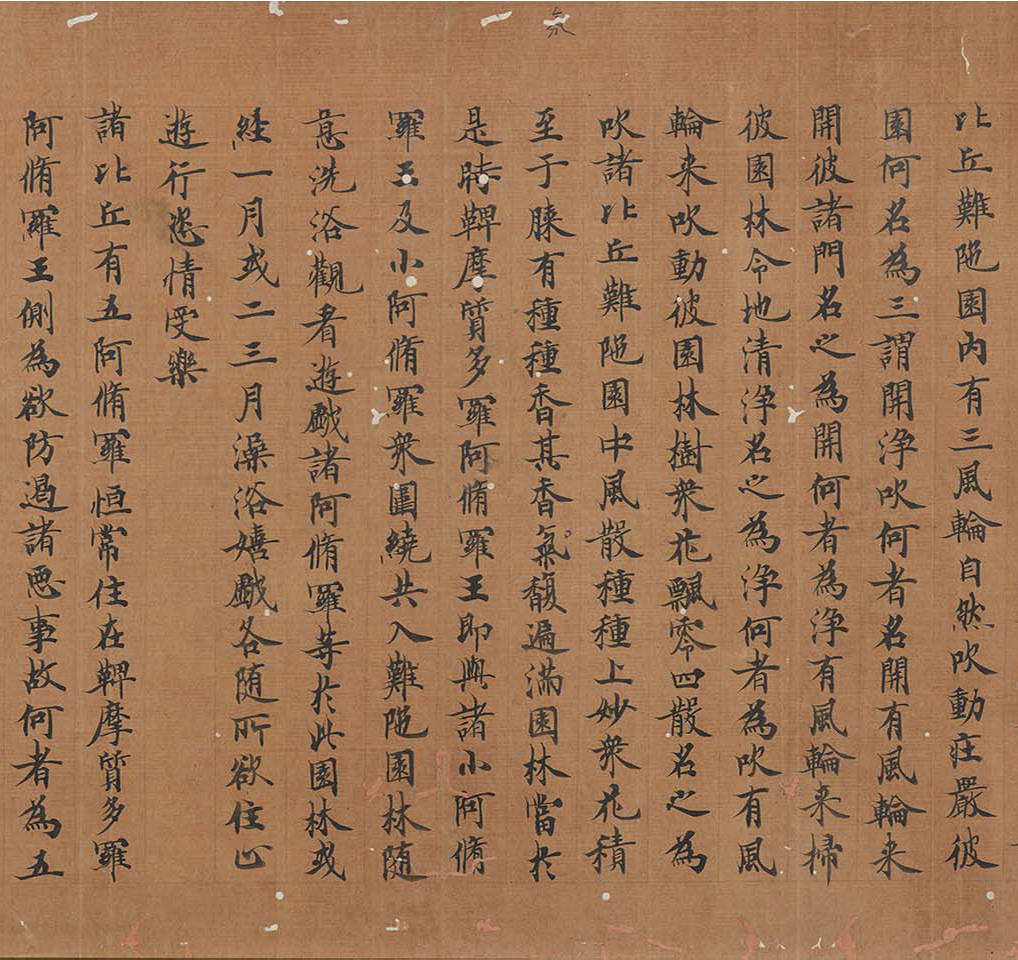 氛
比丘難陁園内有三風輪自然吹動庄嚴彼
園何名為三謂開浄吹何者名開有風輪来
開彼諸門名之為開何者為浄有風輪来掃
彼園林令地清浄名之為浄何者為吹有風
輪来吹動彼園林樹衆花飄零四散名之為
吹諸比丘難陁園中風散種種上妙衆花積
至于膝有種種香其香氣馥遍滿園林當於
是時鞞摩質多羅阿脩羅王即與諸小阿脩
羅王及小阿脩羅衆圍繞共入難陁園林随
意洗浴觀看遊戲諸阿脩羅等於此園林或
経一月或二三月澡浴嬉戲各随所欲住止
遊行恣情受樂
諸比丘有五阿脩羅恒常住在鞞摩質多羅
阿脩羅王側為欲防遏諸悪事故何者為五